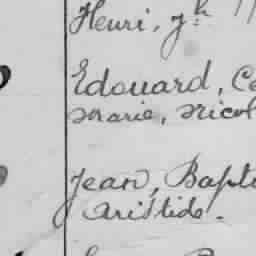 Henri, Jh
Edouard, Ca
Marie, Nicol
Jean, Bapti
Aristide.